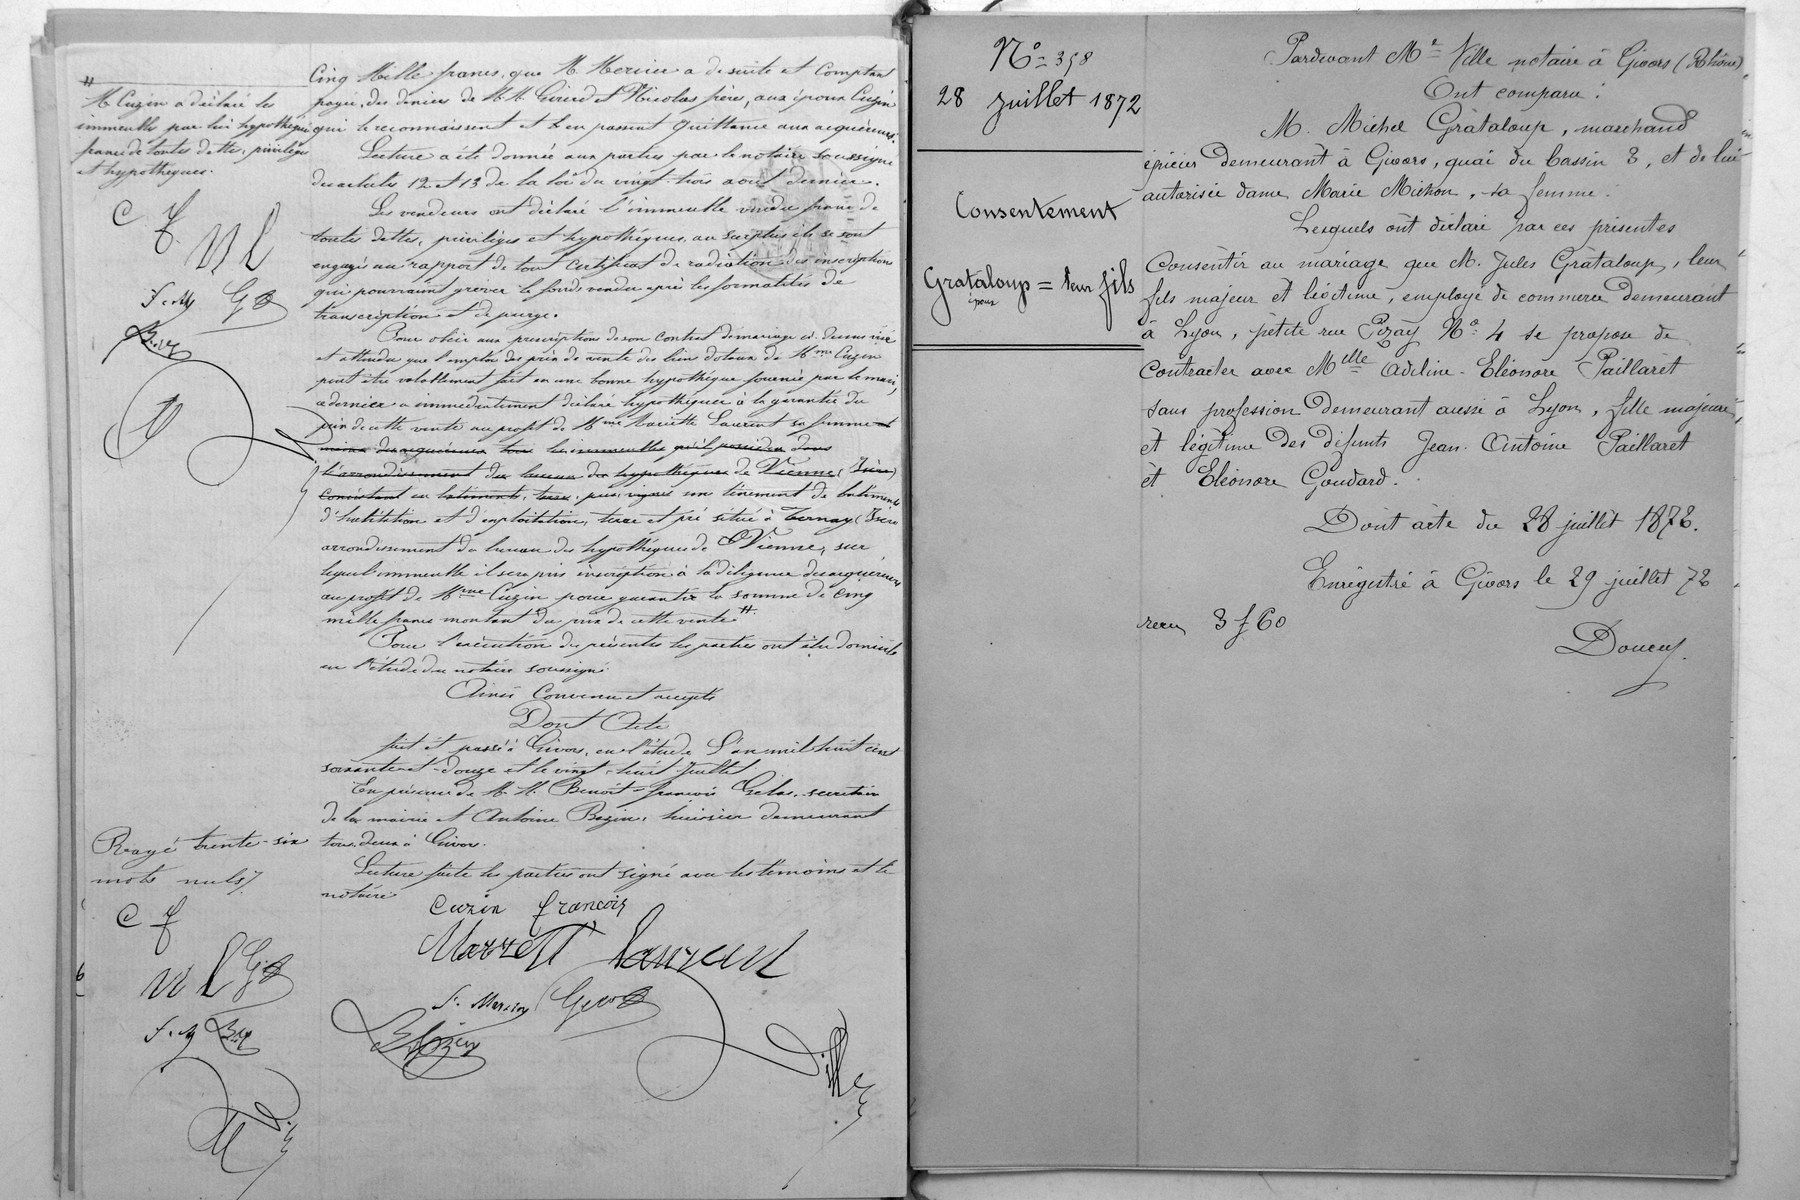 #
M. Cuzin a déclaré les
immeubles par lui hypothéqués
francs de toutes dettes, privilèges
et hypothèques.
C f
M L
F. M G
Cinq Mille francs, que M. Mercier a de suite et Comptant
payé, des deniers de M.M. Giraud et Nicolas frères, aux époux Cuzin
qui le reconnaissent et en passent quittance aux acquéreurs.
Lecture a été donnée aux parties par le notaire soussigné
des articles 12 et 13 de la loi du vingt-trois août dernier.
Les vendeurs ont déclaré l'immeuble vendu franc de
toutes dettes, privilèges et hypothèques, au surplus ils se sont
engagés au rapport de tout certificat de radiation des inscriptions
qui pourraient grever le fonds vendu après les formalités de
transcription et de purge.
Pour obéir aux prescriptions de son contrat de mariage ci-dessus visé
et attendu que l'emploi des prix de vente des biens dotaux de Mme Cuzin
peut être valablement fait en une bonne hypothèque fournie par le mari,
ce dernier a immédiatement déclaré hypothéquer à la garantie du
prix de cette vente au profit de Mme Mariette Laurent sa femme et
tous les immeubles qu'il possède dans
l'arrondissement du bureau des hypothèques de Vienne (Isère)
Consistant en bâtiments, terres, prés, vignes un tènement de bâtiments
d'habitation et d'exploitation, terre et pré situé à Ternay (Isère
arrondissement du bureau des hypothèques de Vienne, sur
lequel immeuble il sera pris inscription à la diligence des acquéreurs
au profit de Mme Cuzin pour garantir la somme de Cinq
mille francs montant du prix de cette vente #.
Pour l'exécution des présentes les parties ont élu domicile
en l'étude du notaire soussigné.
Ainsi Convenu et accepté
Dont Acte
fait et passé à Givors, en l'étude L'an mil huit cent
soixante-et-douze et le vingt-huit Juillet
En présence de M. M. Benoît-François Gelas, secrétaire
de la mairie et Antoine Bazin, huissier demeurant
tous deux à Givors.
Lecture faite les parties ont signé avec les témoins et le
notaire
Rayé trente-six
mots nuls
C f
M L G
F. M
Cuzin françois
Marzett Laurent
F. Mercier
Bazin
Ville
N° 358
28 juillet 1872
Consentement
Grataloup = leur fils
époux
Pardevant Me Ville notaire à Givors (Rhône)
Ont comparu :
M. Michel Grataloup, marchand
épicier demeurant à Givors, quai du bassin 3, et de lui
autorisée dame Marie Michon, sa femme.
Lesquels ont déclaré par ces présentes
Consentir au mariage que M. Jules Grataloup, leur
fils majeur et légitime, employé de commerce demeurant
à Lyon, petite rue Pizay N° 4 se propose de
Contracter avec Melle Adeline-Eléonore Paillaret
sans profession demeurant aussi à Lyon, fille majeure
et légitime des défunts Jean-Antoine Paillaret
et Eléonore Goudard.
Dont acte du 28 juillet 1872.
Enregistré à Givors le 29 juillet 72
reçu 3 f 60
Doucey.